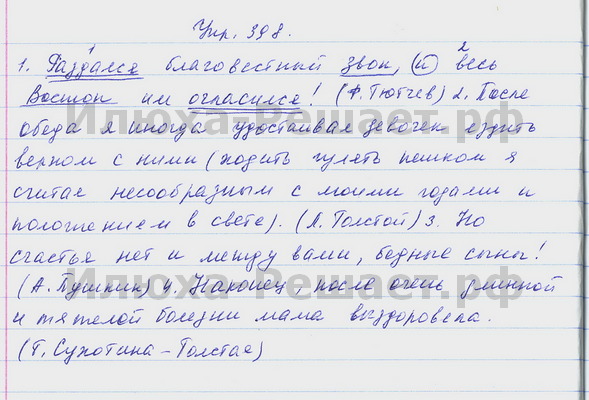 Упр. 398.
1. Раздался благовестный звон, и весь
1 2
Восток им огласился! (Ф. Тютчев) 2. После
Илюха-Решает.рф
обеда я иногда удостаивал девочек ездить
верхом с ними (ходить гулять пешком я
считал несообразным с моими годами и
положением в свете). (Л. Толстой) 3. Но
счастья нет и между вами, бедные сыны!
Илюха-Решает.рф
(А. Пушкин) 4. Наконец, после очень длинной
и тяжелой болезни мама выздоровела.
(Т. Сухотина-Толстая)